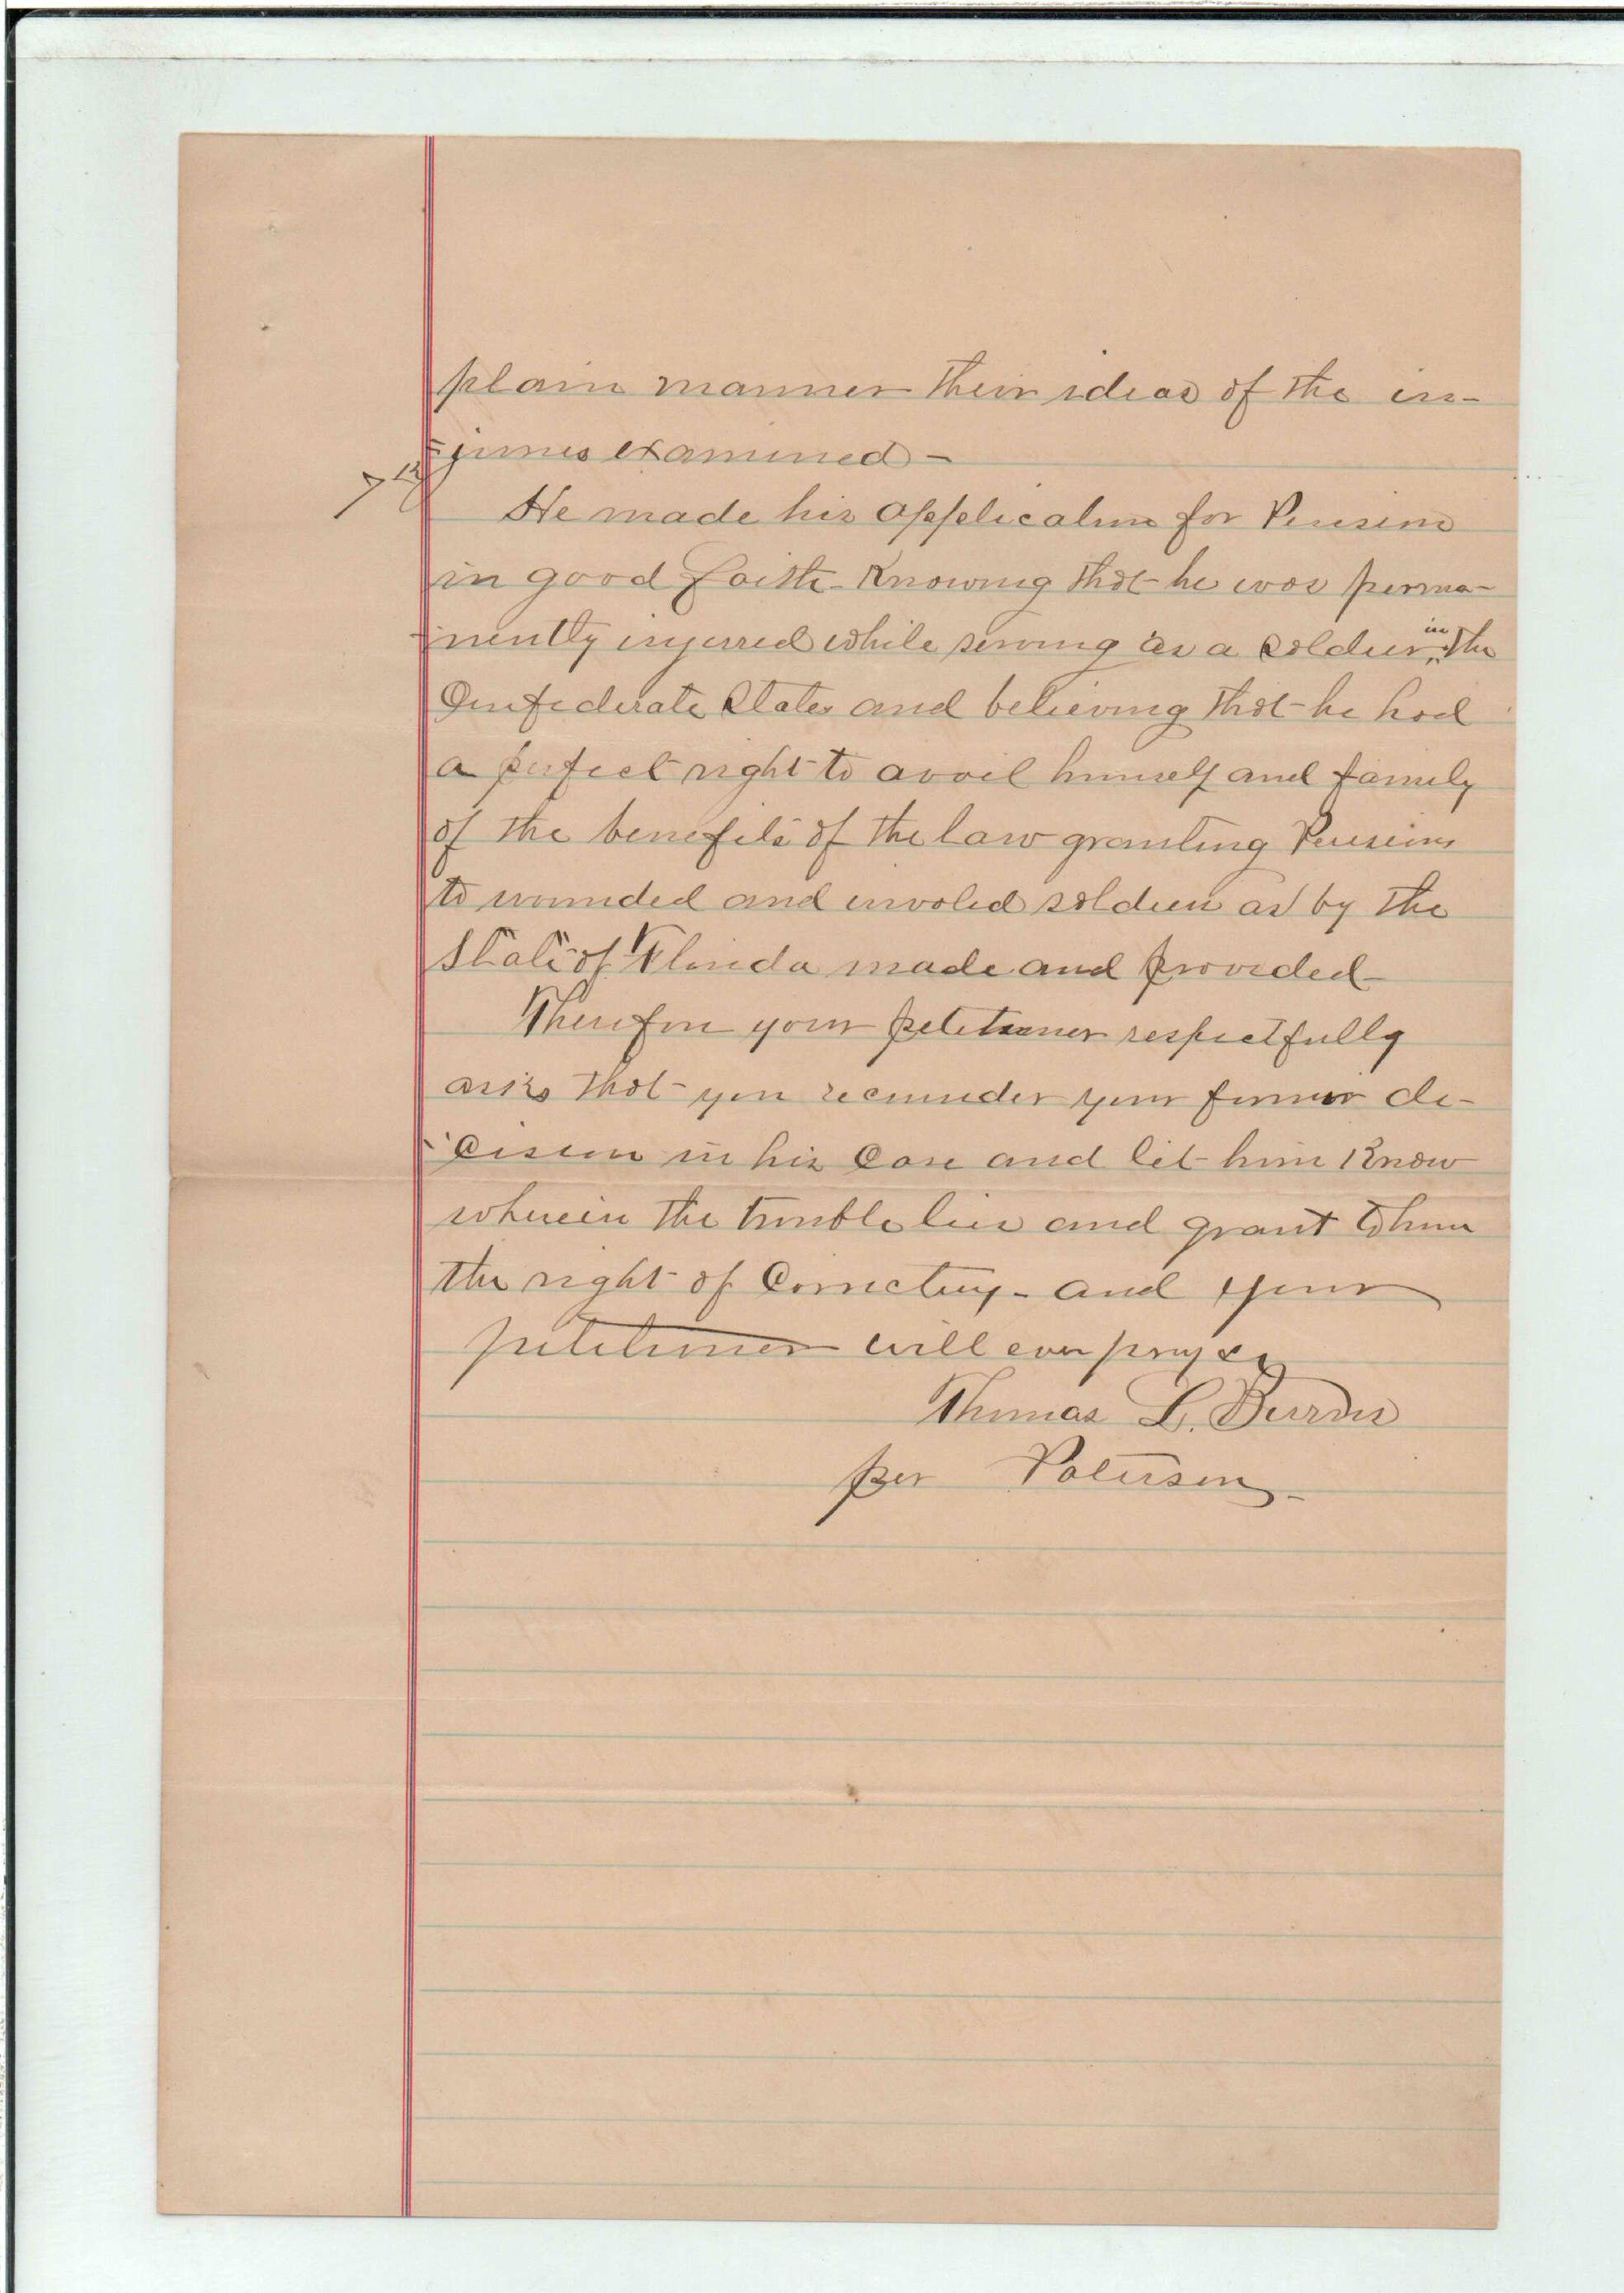 plain manner their ideas of the in-
=juries examined -
7th
He made his application for Pension
in good faith - Knowing that he was perma-
-nently injured while serving as a soldier in the
Confederate States and believing that he had
a perfect right to avail himself and family
of the benefits of the law granting Pensions
to wounded and invalid soldiers as by the
State of Florida made and provided
Therefore your petitioner respectfully
asks that you reconsider your former de-
-cision in his Case and let him Know
wherein the trouble lies and grant to him
the right of Correcting - and your
petitioner will ever pray &c
Thomas L.
per